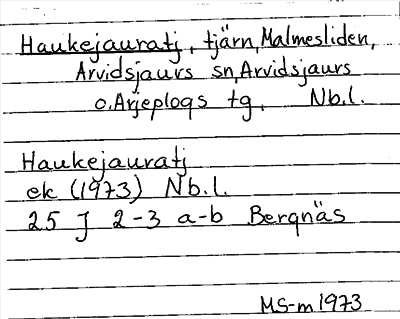 Haukejauratj, tjärn, Malmesliden,
Arvidsjaurs sn, Arvidsjaurs
o. Arjeplogs tg. Nb.l.
Haukejauratj
ek (1973) Nb.l.
25 J 2-3 a-b Bergnäs
MS-m 1973